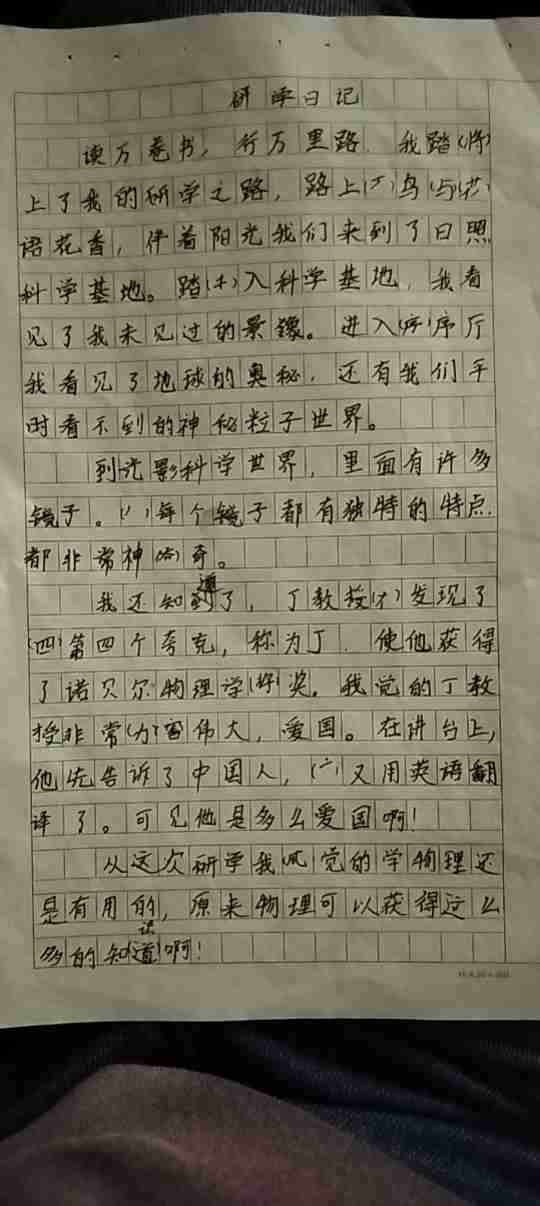 研学日记
读万卷书，行万里路．我踏
上了我的研学之路，路上鸟
语花香，伴着阳光我们来到了日照
科学基地。踏入科学基地，我看
见了我未见过的景像。进入序厅
我看见了地球的奥秘，还有我们平
时看不到的神秘粒子世界。
到光影科学世界，里面有许多
镜子。每个镜子都有独特的特点．
都非常神奇。
我还知道了，丁教授发现了
第四个夸克，称为丁．使他获得
了诺贝尔物理学奖。我觉的丁教
授非常伟大，爱国。在讲台上，
他先告诉了中国人，又用英语翻
译了。可见他是多么爱国啊！
从这次研学我觉的学物理还
是有用的，原来物理可以获得这么
多的知识啊！